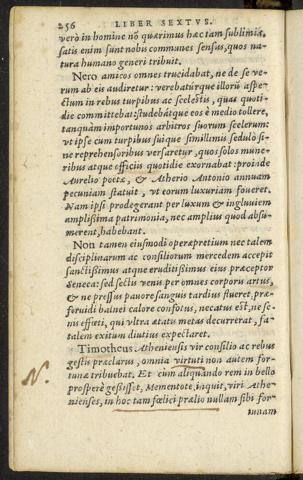 256 LIBER SEXTVS.
verò in homine nõ quærimus hæc tam sublimia.
satis enim sunt nobis communes sensus, quos na-
tura humano generi tribuit.
Nero amicos omnes trucidabat, ne de se ve-
rum ab eis audiretur: verebatúrque illorũ aspe-
ctum in rebus turpibus ac scelestis, quas quoti-
die committebat: studebátque eos è medio tollere,
tanquàm importunos arbitros suorum scelerum:
vt ipse cum turpibus suíque simillimis sedulò si-
ne reprehensoribus versaretur, quos solos mune-
ribus atque officiis quotidie exornabat: proinde
Aurelio poetæ, & Atherio Antonio annuam
pecuniam statuit, vt eorum luxuriam foueret.
Nam ipsi prodegerant per luxum & ingluuiem
amplißima patrimonia, nec amplius quod absu-
merent, habebant.
Non tamen eiusmodi operæpretium nec talem
disciplinarum ac consiliorum mercedem accepit
sanctißimus atque eruditißimus eius præceptor
Seneca: sed sectis venis per omnes corporis artus,
& ne pressus pauore sanguis tardius flueret, præ-
feruidi balnei calore confotus, necatus est, ne se-
nis effœti, qui vltra ætatis metas decurrerat, fa-
talem exitum diutius expectaret.
Timotheus Atheniensis vir consilio ac rebus
gestis præclarus, omnia virtuti non autem for-
tunæ tribuebat. Et cum aliquãdo rem in bello
N. prosperè geßisset, Mementote, inquit, viri Athe-
nienses, in hoc tam fœlici prælio nullam sibi for-
tunam